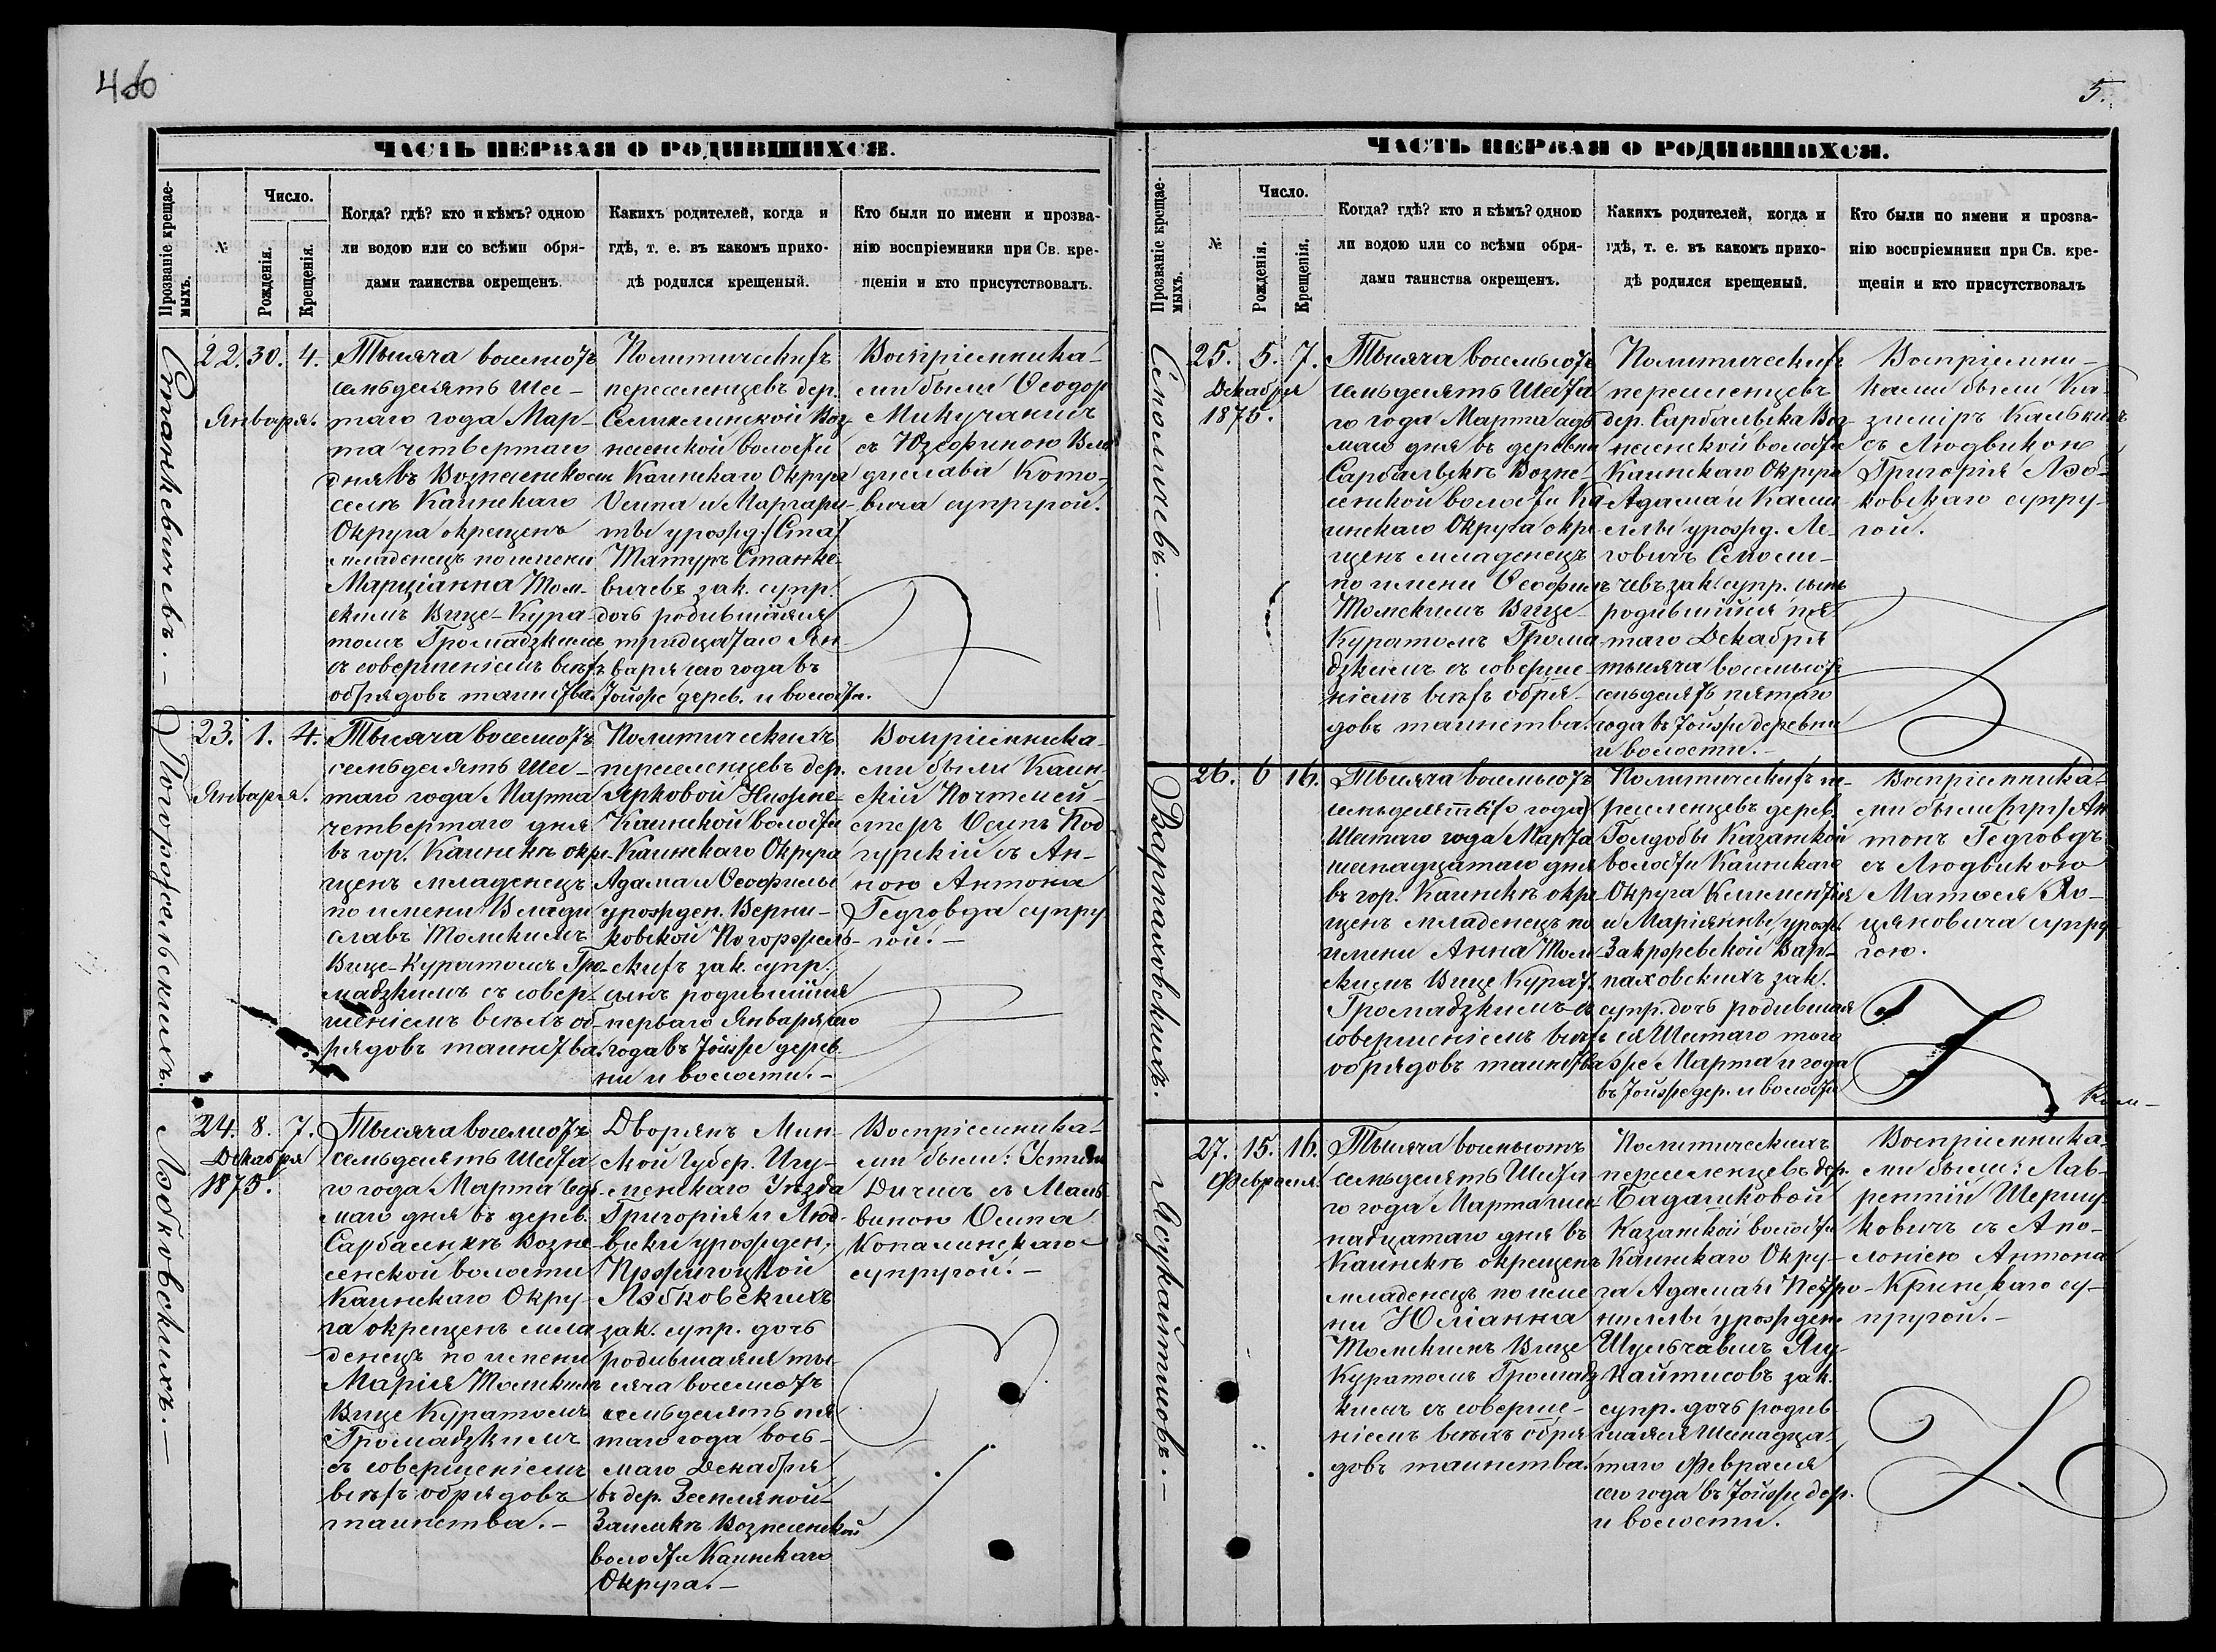 4 об
ЧАСТЬ ПЕРВАЯ О РОДИВШИХСЯ.
Прозваніе крещаемыхъ.
№
Число.
Рожденія.
Крещенія.
Когда? гдѣ? кто и кѣмъ? одною
ли водою или со всѣми обря-
дами таинства окрещенъ.
Какихъ родителей, когда и
гдѣ, т. е. въ какомъ прихо-
дѣ родился крещеный.
Кто были по имени и прозва-
нію воспріемники при Св. кре-
щеніи и кто присутствовалъ.
Станкевичевъ. –
22. 30. 4.
Января.
Тысяча восемьсотъ
семьдесятъ шес-
таго года Мар-
та четвертаго
дня въ Вознесенскомъ
селѣ Каинскаго
Округа окрещенъ
младенецъ по имени
Марціанна Том-
скимъ Вице-Кура-
томъ Громадзкимъ
съ совершеніемъ всѣхъ
обрядовъ таинства.
Политическихъ
переселенцевъ дер.
Воз-
несенской волости
Каинскаго Округа
Осипа и Маргари-
ты урожд.
Станке-
вичевъ зак. супр.
дочь родившаяся
тридцатаго Ян-
варя сего года въ
той же дерев. и волости.
Воспріемника-
ми были Ѳеодор
Микучанисъ
съ Юзефиною Вла-
дислава Кото-
вича супругой.
Погоржельскихъ.
23. 1. 4.
Января.
Тысяча восемьсотъ
семьдесятъ шес-
таго года Марта
четвертаго дня
въ гор. Каинскѣ окре-
щенъ младенецъ
по имени Влади
славъ Томскимъ
Вице-Куратомъ Гро-
мадзкимъ съ совер-
шеніемъ всѣхъ об-
рядовъ таинства.
Политическихъ
переселенцевъ дер.
Ярковой Нижне-
Каинской волости
Каинскаго Округа
Адама и Ѳеофилы
урожден. Верни-
ковской Погоржель-
скихъ зак. супр.
сынъ родившійся
перваго Января сего
года въ той же дерев-
ни и волости. –
Воспріемника-
ми были Каин-
скій Почтмей-
стеръ Осипъ Под
гурскій съ Ан-
ною Антона
Гедговда супру
гой. –
Лэбковскихъ. –
24. 8. 7.
Декабря
1875.
Тысяча восемьсотъ
семьдесятъ шеста
го года Марта седь-
маго дня въ дерев.
Возне-
сенской волости
Каинскаго Окру-
га окрещенъ мла
денецъ по имени
Марія Томскимъ
Вице Куратомъ
Громадзкимъ
съ совершеніемъ
всѣхъ обрядовъ
таинства. –
Дворянъ Мин-
ской Губер. Игу-
менскаго Уѣзда
Григорія и Люд-
вики урожден.
Лэбковскихъ
зак. супр. дочь
родившаяся ты-
сяча восемьсотъ
семьдесятъ пя
таго года вось-
маго Декабря
въ дер.
Заимкѣ Вознесенской
волости Каинскаго
Округа. –
Воспріемника-
ми были: Устинъ
съ Маль-
виною Осипа
Копалинскаго
супругой. –
5.
ЧАСТЬ ПЕРВАЯ О РОДИВШИХСЯ.
Прозваніе крещаемыхъ.
№
Число.
Рожденія.
Крещенія.
Когда? гдѣ? кто и кѣмъ? одною
ли водою или со всѣми обря-
дами таинства окрещенъ.
Какихъ родителей, когда и
гдѣ, т. е. въ какомъ прихо-
дѣ родился крещеный.
Кто были по имени и прозва-
нію воспріемники при Св. кре-
щеніи и кто присутствовалъ
Семомчевъ. –
25. 5. 7.
Декабря
1875.
Тысяча восемьсотъ
семьдесятъ шеста
го года Марта седь
маго дня въ деревни
Сарбальскѣ Возне-
сенской волости Ка
инскаго Округа окре
щенъ младенецъ
по имени Ѳеофилъ
Томскимъ Вице-
Куратомъ Грома
дзкимъ съ соверше-
ніемъ всѣхъ обря-
довъ таинства.
Политическихъ
переселенцевъ
дер. Сарбальска Воз
несенской волости
Каинскаго Округа
Адама и Ками
лли урожд. Ле-
говичъ Семом-
чевъ зак. супр. сынъ
родившійся пя
таго Декабря
тысяча восемьсотъ
семьдесятъ пятаго
года въ той же деревни
и волости. –
Воспріемни-
ками были Ка-
зиміръ
съ Людвикою
Григорія Лэб-
ковскаго супру-
гой.
Варпаховскихъ.
26. 6 16.
Тысяча восемьсотъ
семьдесятъ года
Шестаго года Марта
шестнадцатаго дня
въ гор. Каинскѣ окре
щенъ младенецъ по
имени Анна Том-
скимъ Вице Курат.
Громадзкимъ съ
совершеніемъ всѣхъ
обрядовъ таинства
Политическихъ пе-
реселенцевъ дерев.
Голдобы Казанской
волости Каинскаго
Округа Климентія
и Маріянны урожд.
Закржевской Вар-
паховскихъ зак.
супр. дочь родившая
ся Шестаго того
же Марта и года
въ той же дер. и волости
Воспріемника-
ми были Ан
тонъ Гедговдъ
съ Людвикою
Матвея Яо-
цяновича супру
гою.
Ясукайтисовъ. –
27. 15. 16.
Февраля.
Тысяча восемьсотъ
семьдесятъ Шеста
го года Марта шес-
надцатаго дня въ
Каинскѣ окрещенъ
младенецъ по име
ни Юліанна
Томскимъ Вице
Куратомъ Громадз
кимъ съ соверше-
ніемъ всѣхъ обря
довъ таинства.
Политическихъ
переселенцевъ дер.
Бадашковой
Казанской волости
Каинскаго Окру-
га Адама и Петро-
нилли урожден.
Яцу-
кайтисовъ зак.
супр. дочь родив
шаяся
таго Февраля
сего года въ той же дер.
и волости.
Воспріемника-
ми были: Лав-
рентій Шершу-
ковичъ съ Апо-
лоніею Антона
Кринскаго су-
пругой. –